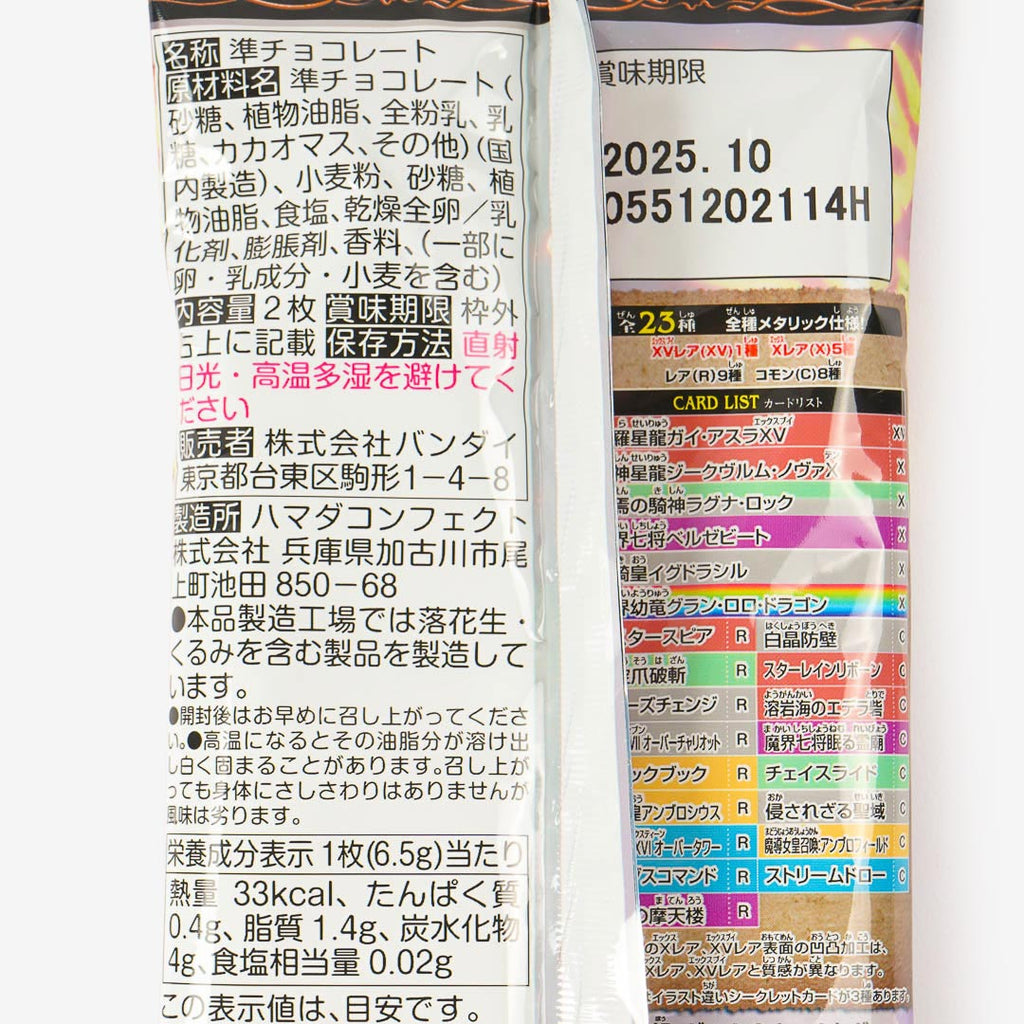 名称 準チョコレート
原材料名 準チョコレート(
砂糖、植物油脂、全粉乳、乳
糖、カカオマス、その他)(国
内製造)、小麦粉、砂糖、植
物油脂、食塩、乾燥全卵/乳
化剤、膨脹剤、香料、(一部に
卵・乳成分・小麦を含む)
内容量 2枚 賞味期限 枠外
右上に記載 保存方法 直射
日光・高温多湿を避けてく
ださい
販売者 株式会社バンダイ
東京都台東区駒形1-4-8
製造所 ハマダコンフェクト
株式会社 兵庫県加古川市尾
上町池田 850-68
●本品製造工場では落花生・
くるみを含む製品を製造して
います。
●開封後はお早めに召し上がってくださ
い。●高温になるとその油脂分が溶け出
し白く固まることがあります。召し上が
っても身体にさしさわりはありませんが
風味は劣ります。
栄養成分表示 1枚(6.5g)当たり
熱量 33kcal、たんぱく質
0.4g、脂質 1.4g、炭水化物
4g、食塩相当量 0.02g
この表示値は、目安です。
賞味期限
2025.10
0551202114H
全23種 全種メタリック仕様!
XVレア(XV)1種 Xレア(X)5種
レア(R)9種 コモン(C)8種
CARD LIST カードリスト
羅星龍ガイ・アスラXV XV
神星龍ジークヴルム・ノヴァX X
の騎神ラグナ・ロック X
界七将ベルゼビート X
騎皇イグドラシル X
界幼竜グラン・ロロ・ドラゴン X
タースピア R 白晶防壁 C
爪破斬 R スターレインリボーン C
ーズチェンジ R 溶岩海のエデラ砦 C
VII オーバーチャリオット R 魔界七将眠る霊廟 C
ックブック R チェイスライド C
皇アンブロシウス R 侵されざる聖域 C
XVI オーバータワー R 魔導女皇召喚:アンブロフィールド C
スコマンド R ストリームドロー C
の摩天楼 R
のXレア、XVレア表面の凹凸加工は、
Xレア、XVレアと質感が異なります。
イラスト違いシークレットカードが3種あります。